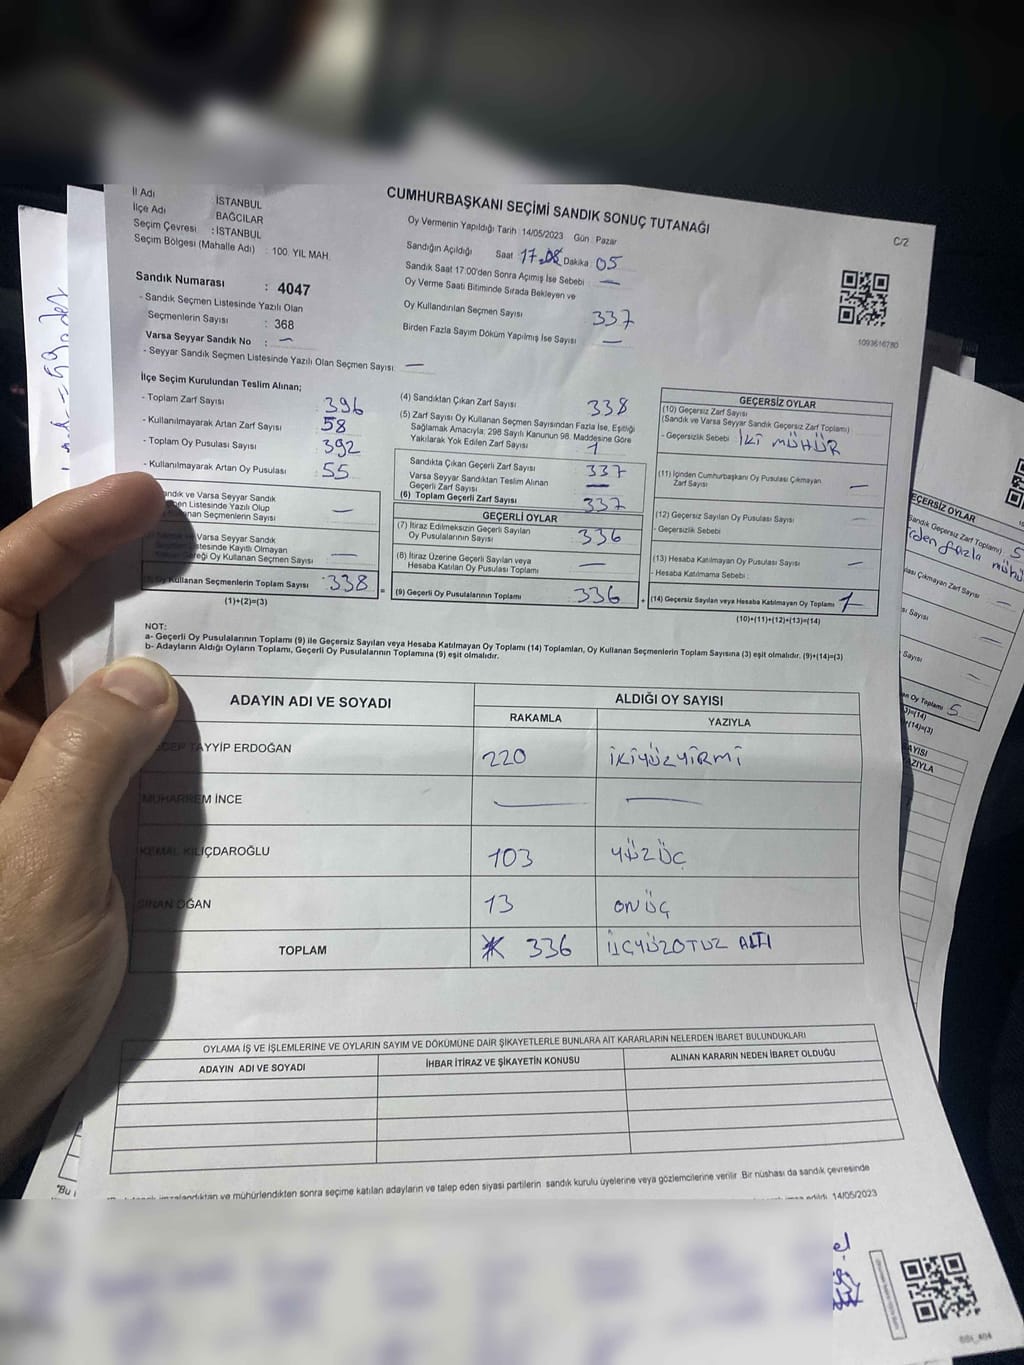 CUMHURBAŞKANI SEÇİMİ SANDIK SONUÇ TUTANAĞI
C/2
İl Adı : İSTANBUL
İlçe Adı : BAĞCILAR
Seçim Çevresi : İSTANBUL
Seçim Bölgesi (Mahalle Adı) : 100. YIL MAH.
Oy Vermenin Yapıldığı Tarih : 14/05/2023 Gün : Pazar
Sandığın Açıldığı Saat 17.08 Dakika 05
Sandık Saat 17:00'den Sonra Açımış İse Sebebi : —
Oy Verme Saati Bitiminde Sırada Bekleyen ve
Oy Kullandırılan Seçmen Sayısı 337
Birden Fazla Sayım Döküm Yapılmış İse Sayısı —
1093616780
Sandık Numarası : 4047
- Sandık Seçmen Listesinde Yazılı Olan
Seçmenlerin Sayısı : 368
Varsa Seyyar Sandık No : —
- Seyyar Sandık Seçmen Listesinde Yazılı Olan Seçmen Sayısı: —
İlçe Seçim Kurulundan Teslim Alınan;
- Toplam Zarf Sayısı : 396
- Kullanılmayarak Artan Zarf Sayısı : 58
- Toplam Oy Pusulası Sayısı : 392
- Kullanılmayarak Artan Oy Pusulası : 55
andık ve Varsa Seyyar Sandık
en Listesinde Yazılı Olup
anan Seçmenlerin Sayısı —
Listesinde Kayıtlı Olmayan
Oy Kullanan Seçmen Sayısı —
Oy Kullanan Seçmenlerin Toplam Sayısı 338
(1)+(2)=(3)
(4) Sandıktan Çıkan Zarf Sayısı 338
(5) Zarf Sayısı Oy Kullanan Seçmen Sayısından Fazla İse, Eşitliği
Sağlamak Amacıyla, 298 Sayılı Kanunun 98. Maddesine Göre
Yakılarak Yok Edilen Zarf Sayısı 1
Sandıkta Çıkan Geçerli Zarf Sayısı 337
Varsa Seyyar Sandıktan Teslim Alınan
Geçerli Zarf Sayısı —
(6) Toplam Geçerli Zarf Sayısı 337
GEÇERLİ OYLAR
(7) İtiraz Edilmeksizin Geçerli Sayılan
Oy Pusulalarının Sayısı 336
(8) İtiraz Üzerine Geçerli Sayılan veya
Hesaba Katılan Oy Pusulası Toplamı —
= (9) Geçerli Oy Pusulalarının Toplamı 336 +
GEÇERSİZ OYLAR
(10) Geçersiz Zarf Sayısı
(Sandık ve Varsa Seyyar Sandık Geçersiz Zarf Toplamı)
- Geçersizlik Sebebi : İKİ MÜHÜR
(11) İçinden Cumhurbaşkanı Oy Pusulası Çıkmayan
Zarf Sayısı —
(12) Geçersiz Sayılan Oy Pusulası Sayısı —
- Geçersizlik Sebebi :
(13) Hesaba Katılmayan Oy Pusulası Sayısı —
- Hesaba Katılmama Sebebi :
(14) Geçersiz Sayılan veya Hesaba Katılmayan Oy Toplamı 1
(10)+(11)+(12)+(13)=(14)
NOT:
a- Geçerli Oy Pusulalarının Toplamı (9) ile Geçersiz Sayılan veya Hesaba Katılmayan Oy Toplamı (14) Toplamları, Oy Kullanan Seçmenlerin Toplam Sayısına (3) eşit olmalıdır. (9)+(14)=(3)
b- Adayların Aldığı Oyların Toplamı, Geçerli Oy Pusulalarının Toplamına (9) eşit olmalıdır.
ADAYIN ADI VE SOYADI
ALDIĞI OY SAYISI
RAKAMLA YAZIYLA
CEP TAYYİP ERDOĞAN 220 İKİYÜZYİRMİ
MUHARREM İNCE — —
KEMAL KILIÇDAROĞLU 103 YÜZÜÇ
SİNAN OĞAN 13 ONÜÇ
TOPLAM 336 ÜÇYÜZOTUZ ALTI
OYLAMA İŞ VE İŞLEMLERİNE VE OYLARIN SAYIM VE DÖKÜMÜNE DAİR ŞİKAYETLERLE BUNLARA AİT KARARLARIN NELERDEN İBARET BULUNDUKLARI
ADAYIN ADI VE SOYADI İHBAR İTİRAZ VE ŞİKAYETİN KONUSU ALINAN KARARIN NEDEN İBARET OLDUĞU
imzalandıktan ve mühürlendikten sonra seçime katılan adayların ve talep eden siyasi partilerin sandık kurulu üyelerine veya gözlemcilerine verilir. Bir nüshası da sandık çevresinde
14/05/2023
*Bu
EÇERSİZ OYLAR
Geçersiz Zarf Toplamı) : 5
rden fazla mühü
ulası Çıkmayan Zarf Sayısı —
sı Sayısı —
Sayısı —
an Oy Toplamı 5
)=(14)
+(14)=(3)
AYISI
AZIYLA